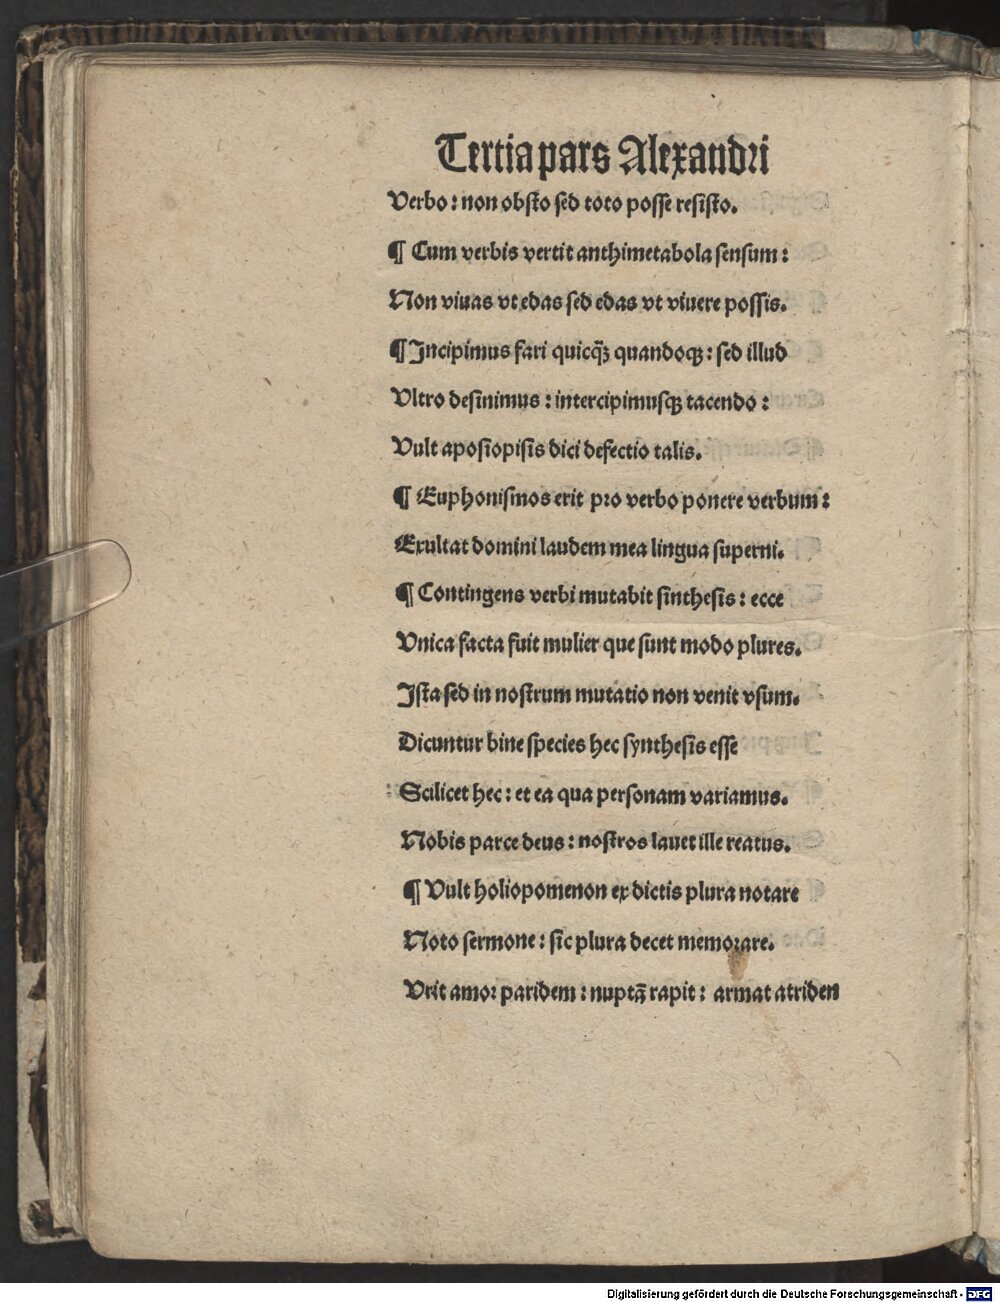 Tertia pars Alexandri
Verbo: non obsto sed toto posse resisto.
¶ Cum verbis vertit anthimetabola sensum:
Non viuas vt edas sed edas vt viuere possis.
¶ Incipimus fari quicq̃ꝫ quandoqꝫ: sed illud
Vltro desinimus: intercipimusqꝫ tacendo:
Vult aposiopisis dici defectio talis.
¶ Euphonismos erit pro verbo ponere verbum:
Exultat domini laudem mea lingua superni.
¶ Contingens verbi mutabit sinthesis: ecce
Vnica facta fuit mulier que sunt modo plures.
Ista sed in nostrum mutatio non venit vsum.
Dicuntur bine species hec synthesis esse
Scilicet hec: et ea qua personam variamus.
Nobis parce deus: nostros lauet ille reatus.
¶ Vult holiopomenon ex dictis plura notare
Noto sermone: sic plura decet memorare.
Vrit amor paridem: nuptā rapit: armat atriden
Digitalisierung gefördert durch die Deutsche Forschungsgemeinschaft - DFG